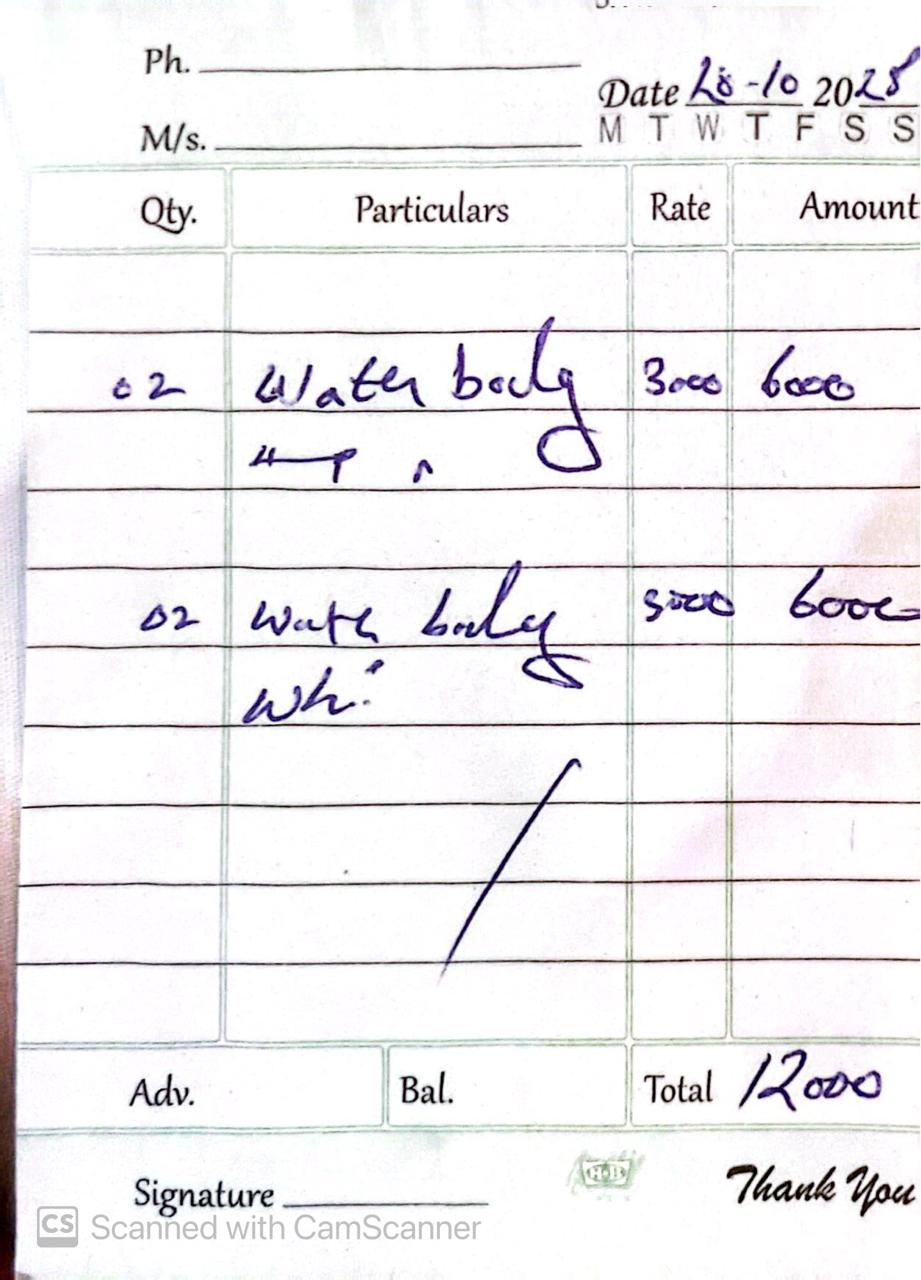 Ph.
Date -10 2028
M/s.
M T W T F S S
Qty. Particulars Rate Amount
02 Water body 3000 6000
02 Water body 3000 6000
Adv. Bal. Total 12000
H·B
Signature Thank You
CS Scanned with CamScanner